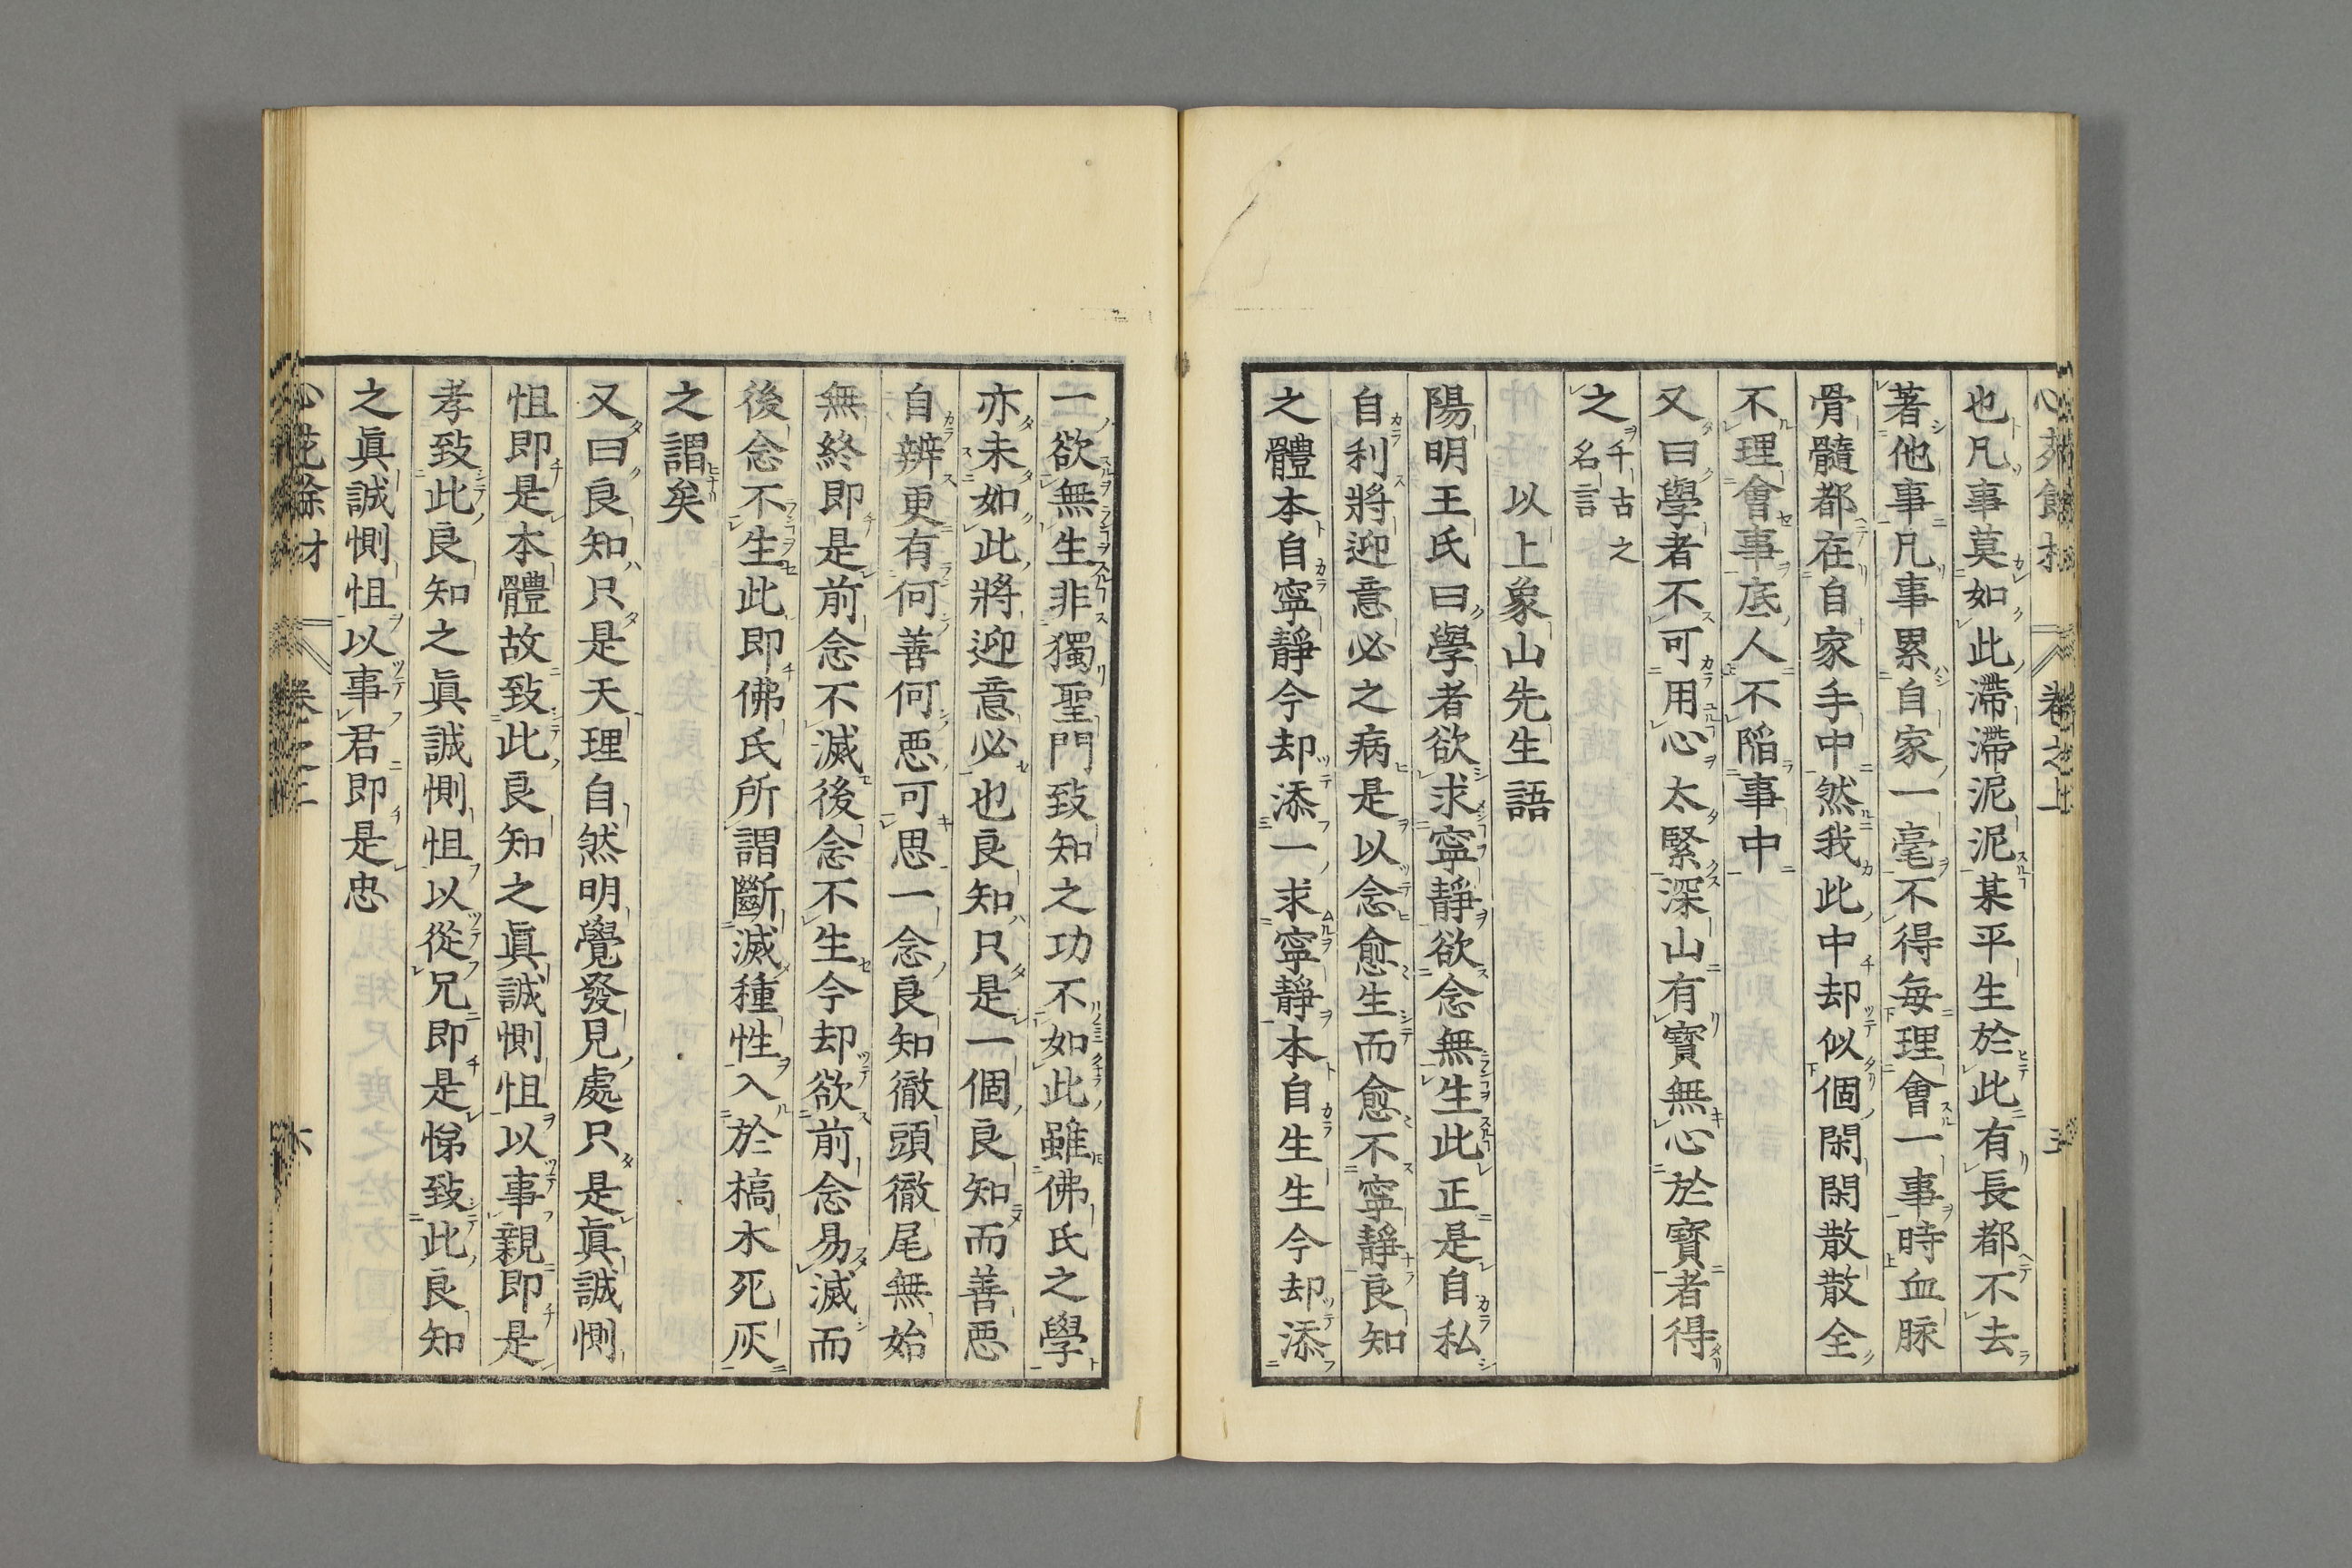 也凡事莫如此滯滯泥泥某平生於此有長都不去
著他事凡事累自家一毫不得每理會一事時血脉
骨髓都在自家手中然我此中却似個閑閑散散全
不理會事底人不陷事中
又曰學者不可用心太緊深山有寶無心於寶者得
之千古之名言
以上象山先生語
陽明王氏曰學者欲求寧靜欲念無生此正是自私
自利將迎意必之病是以念愈生而愈不寧靜良知
之體本自寧靜今却添一求寧靜本自生生今却添
一欲無生非獨聖門致知之功不如此雖佛氏之學
亦未如此將迎意必也良知只是一個良知而善惡
自辨更有何善何惡可思一念良知徹頭徹尾無始
無終即是前念不滅後念不生今却欲前念易滅而
後念不生此即佛氏所謂斷滅種性入於槁木死灰
之謂矣
又曰良知只是天理自然明覺發見處只是眞誠惻
怛即是本體故致此良知之眞誠惻怛以事親即是
孝致此良知之眞誠惻怛以從兄即是悌致此良知
之眞誠惻怛以事君即是忠
卷之上
六